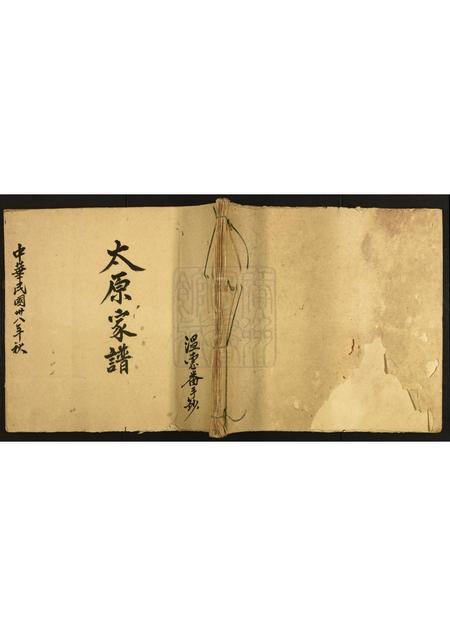 太原家譜
中華民國卅八年秋
溫憲番手鈔